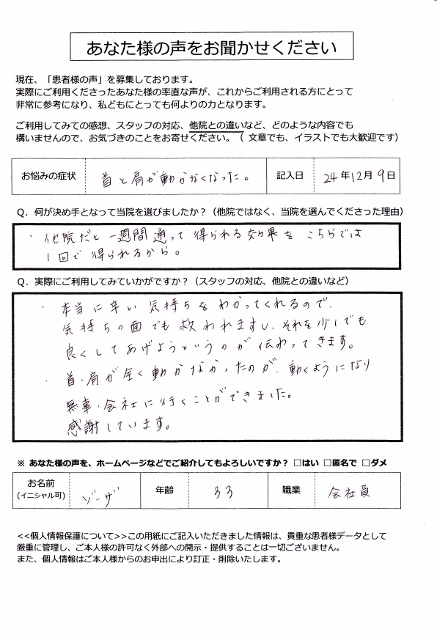 あなた様の声をお聞かせください
現在、「患者様の声」を募集しております。
実際にご利用くださったあなた様の率直な声が、これからご利用される方にとって
非常に参考になり、私どもにとっても何よりの力となります。
ご利用してみての感想、スタッフの対応、他院との違いなど、どのような内容でも
構いませんので、お気づきのことをお寄せください。（ 文章でも、イラストでも大歓迎です）
お悩みの症状 首と肩が動かなくなった。 記入日 24年12月9日
Q. 何が決め手となって当院を選びましたか？（他院ではなく、当院を選んでくださった理由）
・他院だと一週間通って得られる効果を こちらでは
1回で得られるから。
Q. 実際にご利用してみていかがですか？（スタッフの対応、他院との違いなど）
・本当に辛い気持ちをわかってくれるので、
気持ちの面でも救われますし、それを少しでも
良くしてあげようというのが伝わってきます。
・首・肩が全く動かなかったのが、動くようになり
無事、会社に行くことができました。
感謝しています。
※ あなた様の声を、ホームページなどでご紹介してもよろしいですか？ □はい □匿名で □ダメ
お名前
(イニシャル可) 年齢 33 職業 会社員
<<個人情報保護について>>この用紙にご記入いただきました情報は、貴重な患者様データとして
厳重に管理し、ご本人様の許可なく外部への開示・提供することは一切ございません。
また、個人情報はご本人様からのお申出により訂正・削除いたします。